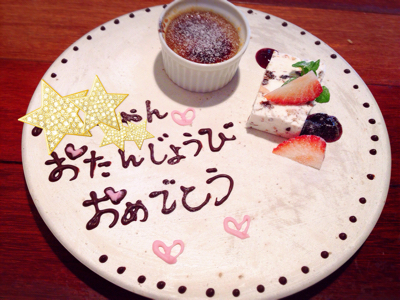 ゃん
おたんじょうび
おめでとう